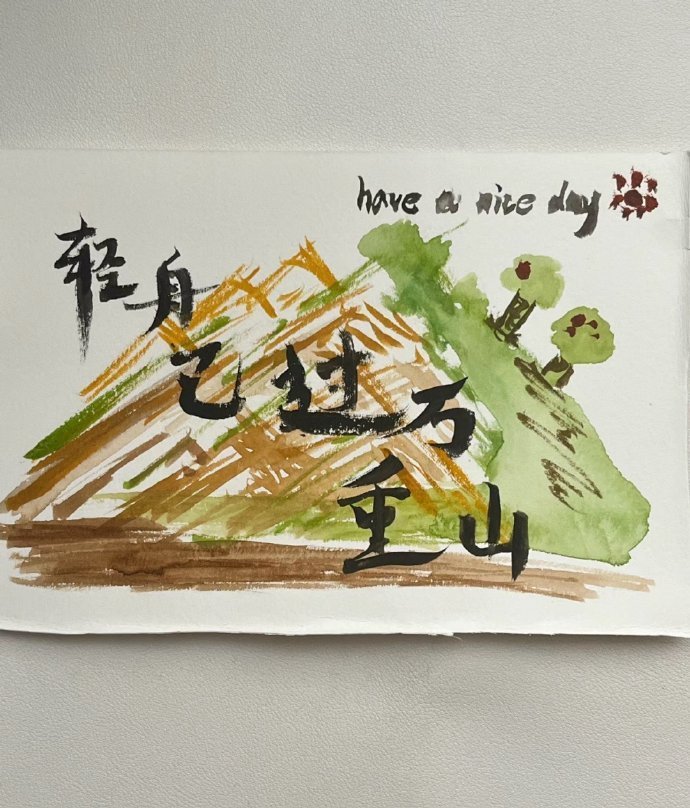 have a nice day
轻舟
已过万
重山